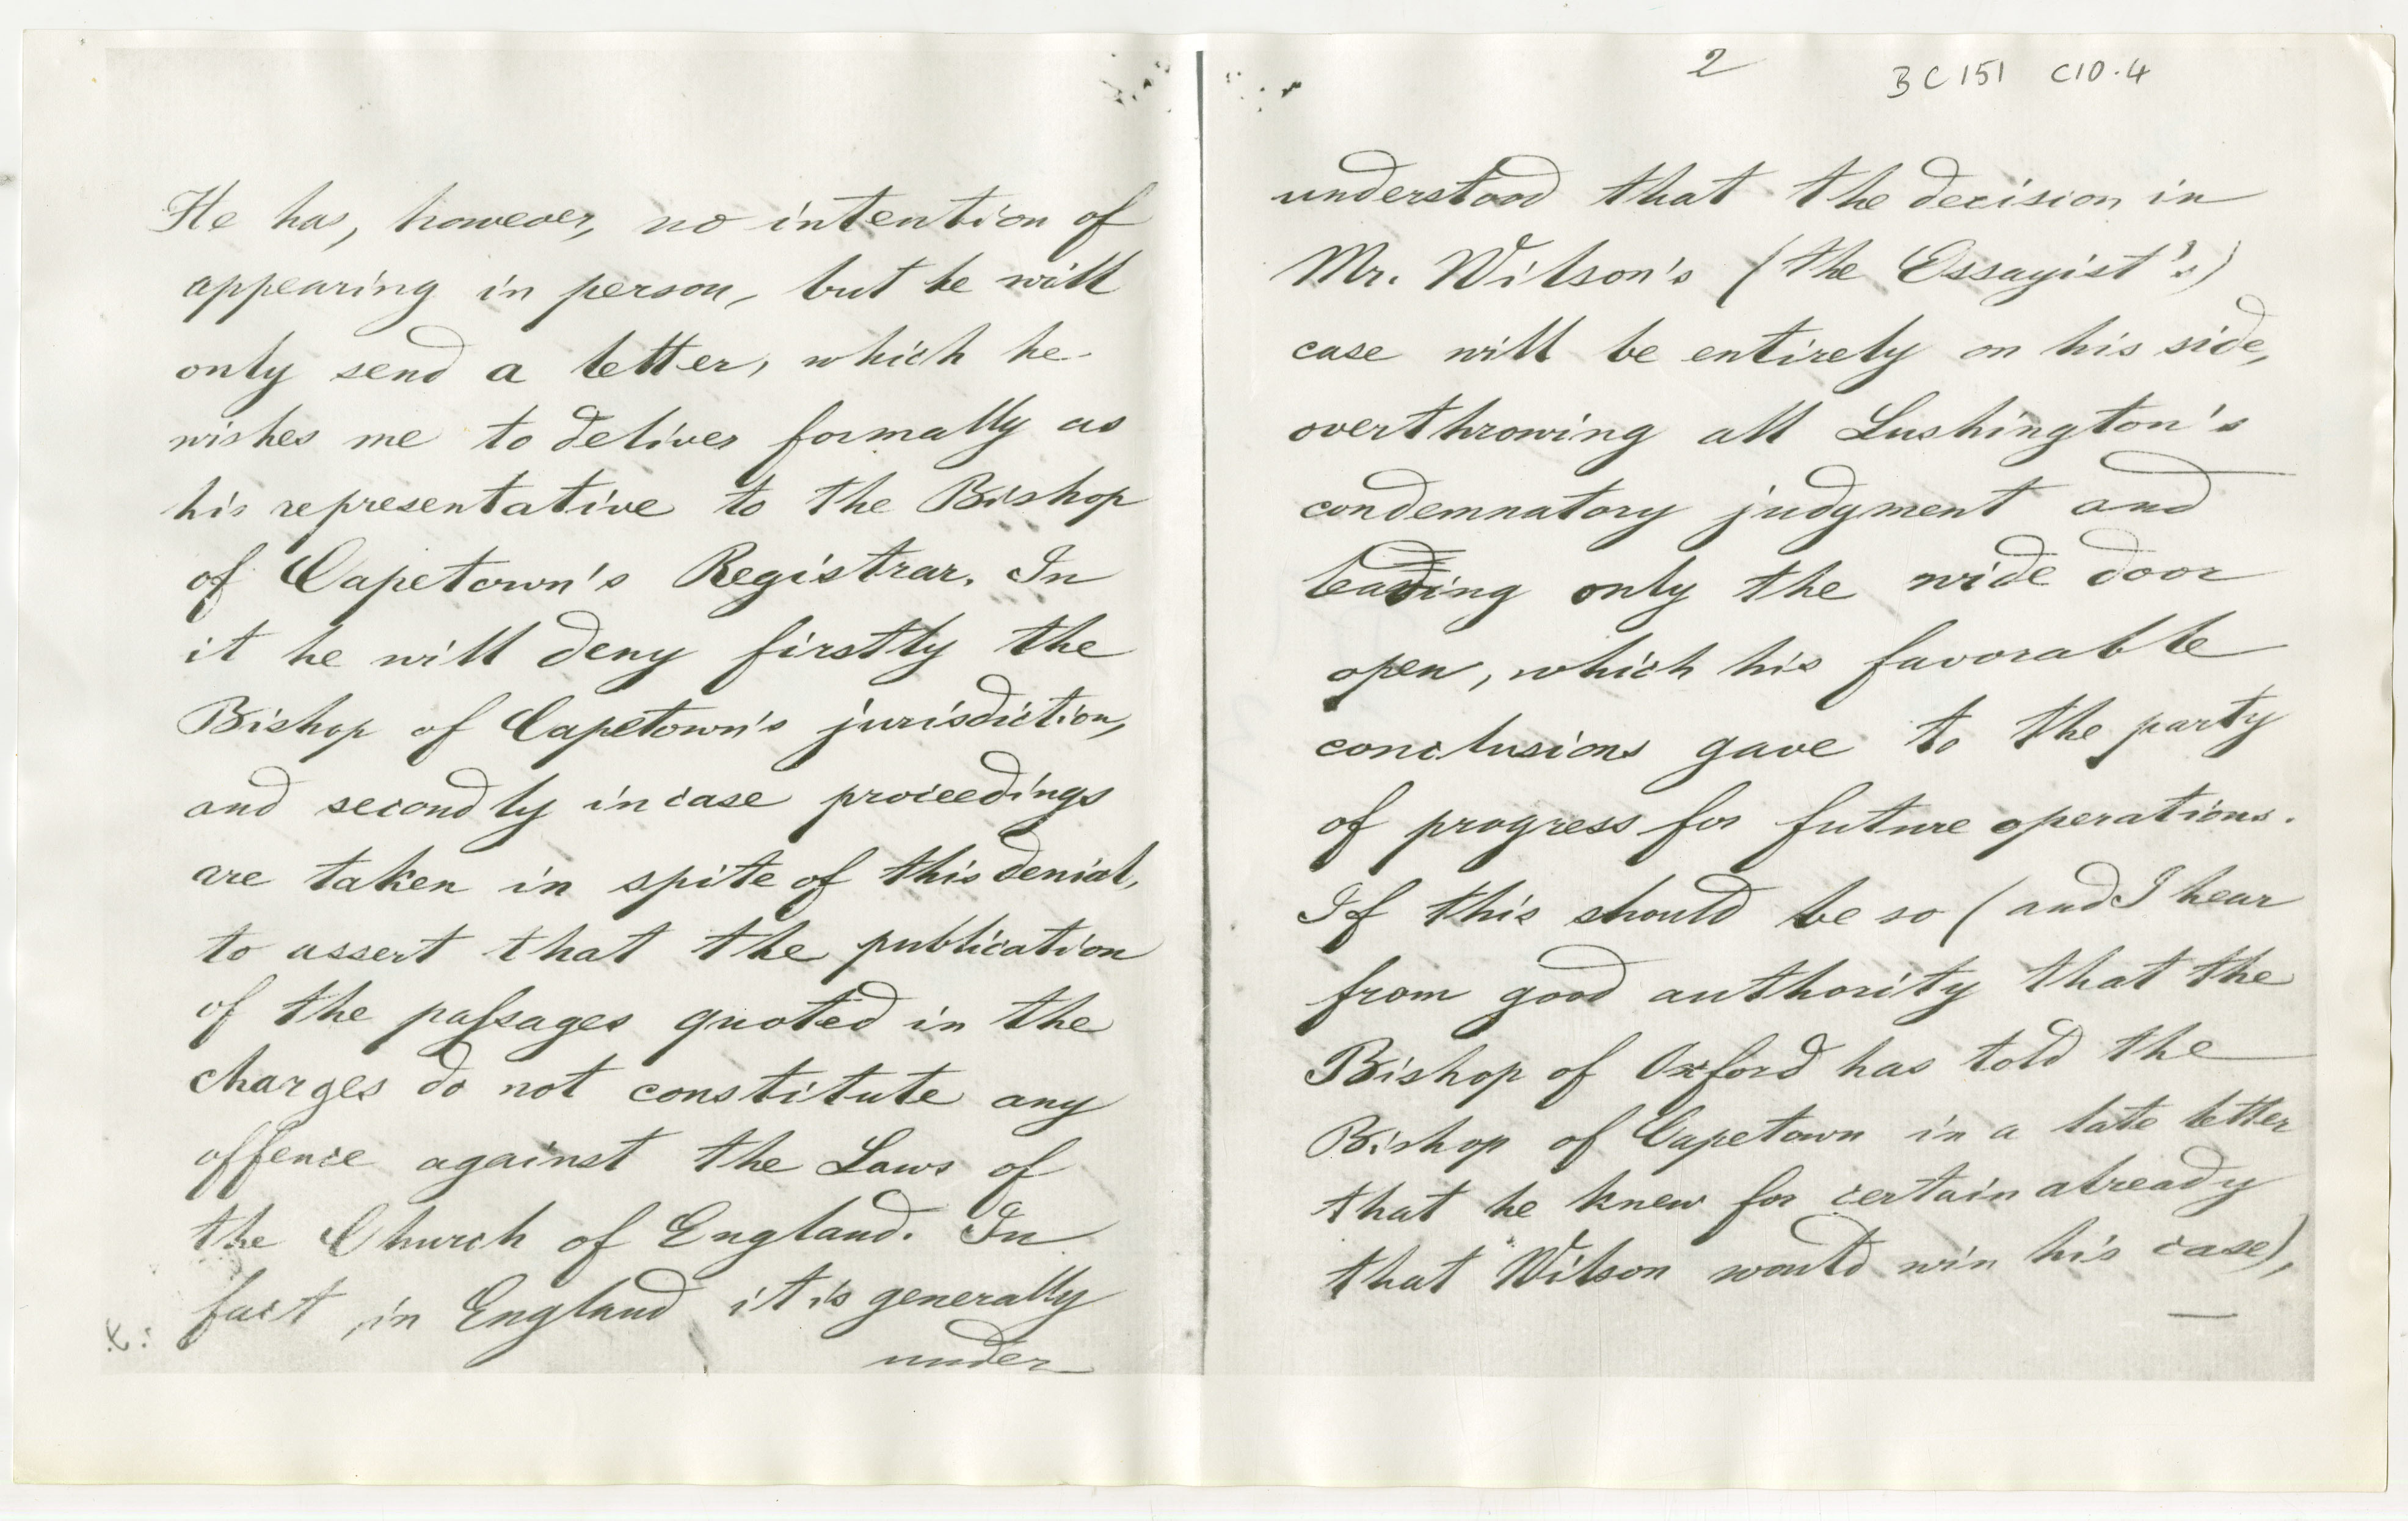 He has, however, no intention of
appearing in person, but he will
only send a letter, which he
wishes me to deliver formally as
his representative to the Bishop
of Capetown's Registrar. In
it he will deny firstly the
Bishop of Capetown's jurisdiction,
and secondly in case proceedings
are taken in spite of this denial,
to assert that the publication
of the paſsages quoted in the
charges do not constitute any
offence against the Laws of
the Church of England. In
fact in England it is generally
under
2
BC151 C10.4
understood that the decision in
Mr. Wilson's (the Essayist's)
case will be entirely on his side,
overthrowing all Lushington's
condemnatory judgment and
leaving only the wide door
open, which his favorable
conclusions gave to the party
of progress for future operations.
If this should be so (and I hear
from good authority that the
Bishop of Oxford has told the
Bishop of Capetown in a late letter
that he knew for certain already
that Wilson would win his case),